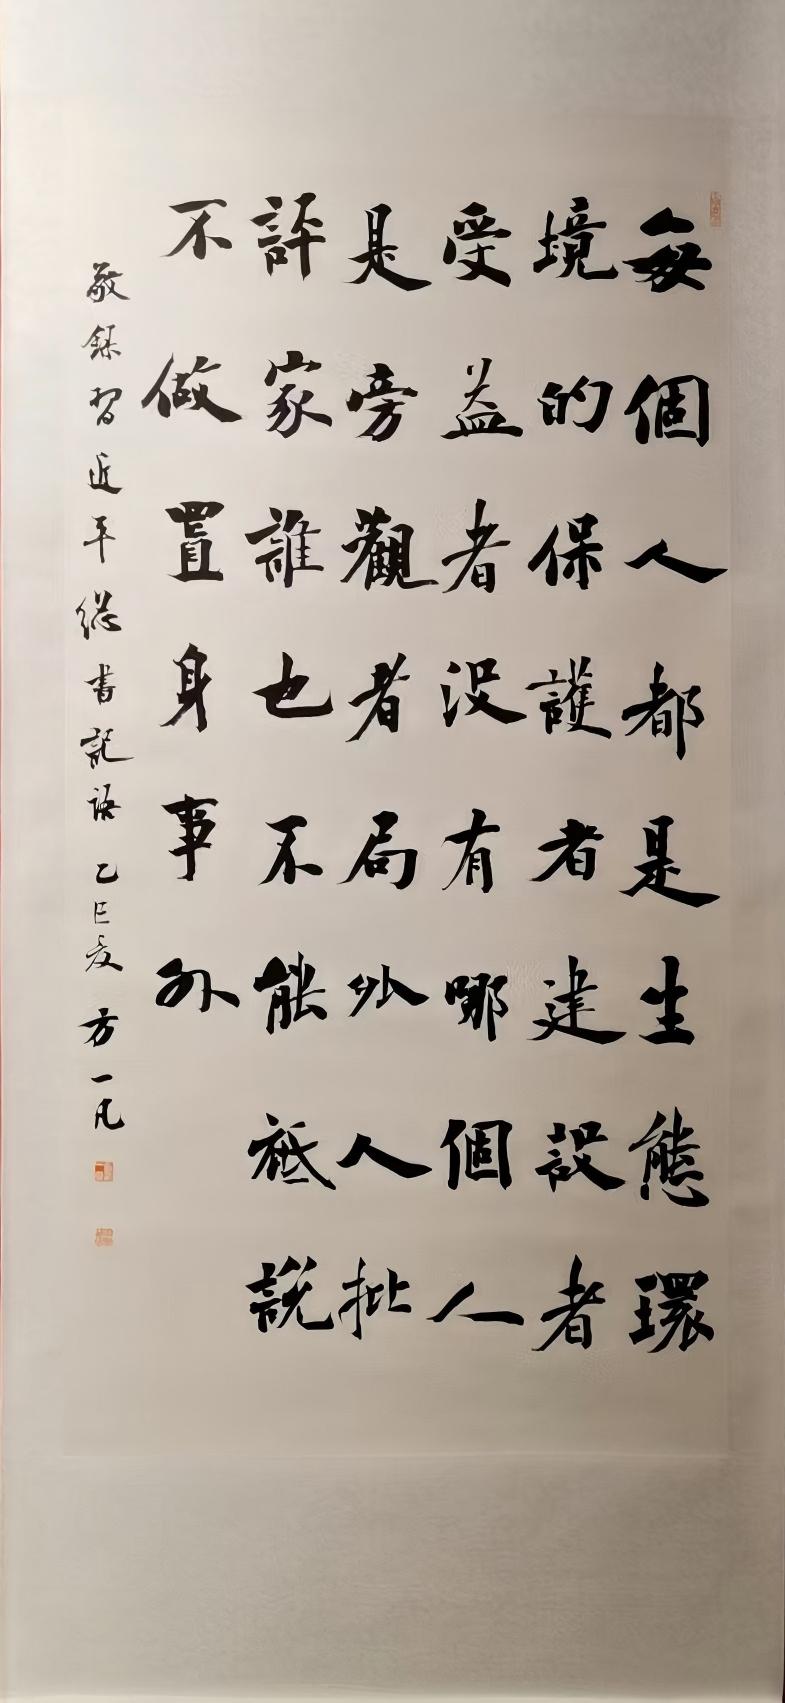 每個人都是生態環
境的保護者建設者
受益者没有哪個人
是旁觀者局外人批
評家誰也不能祗説
不做置身事外
敬錄習近平總書記語 乙巳夏 方一凡